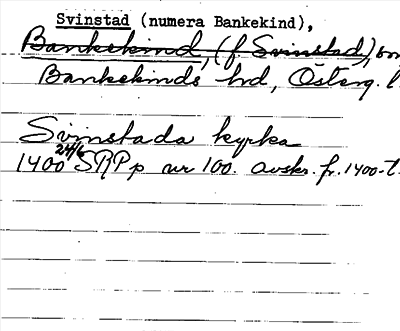 Svinstad (numera Bankekind),
Bankekind, (f. Svinstad), som
Bankekinds hrd, Österg. l.
Svinstada kyrka
1400 24/6 SRPp nr 100. avskr. fr. 1400-t.